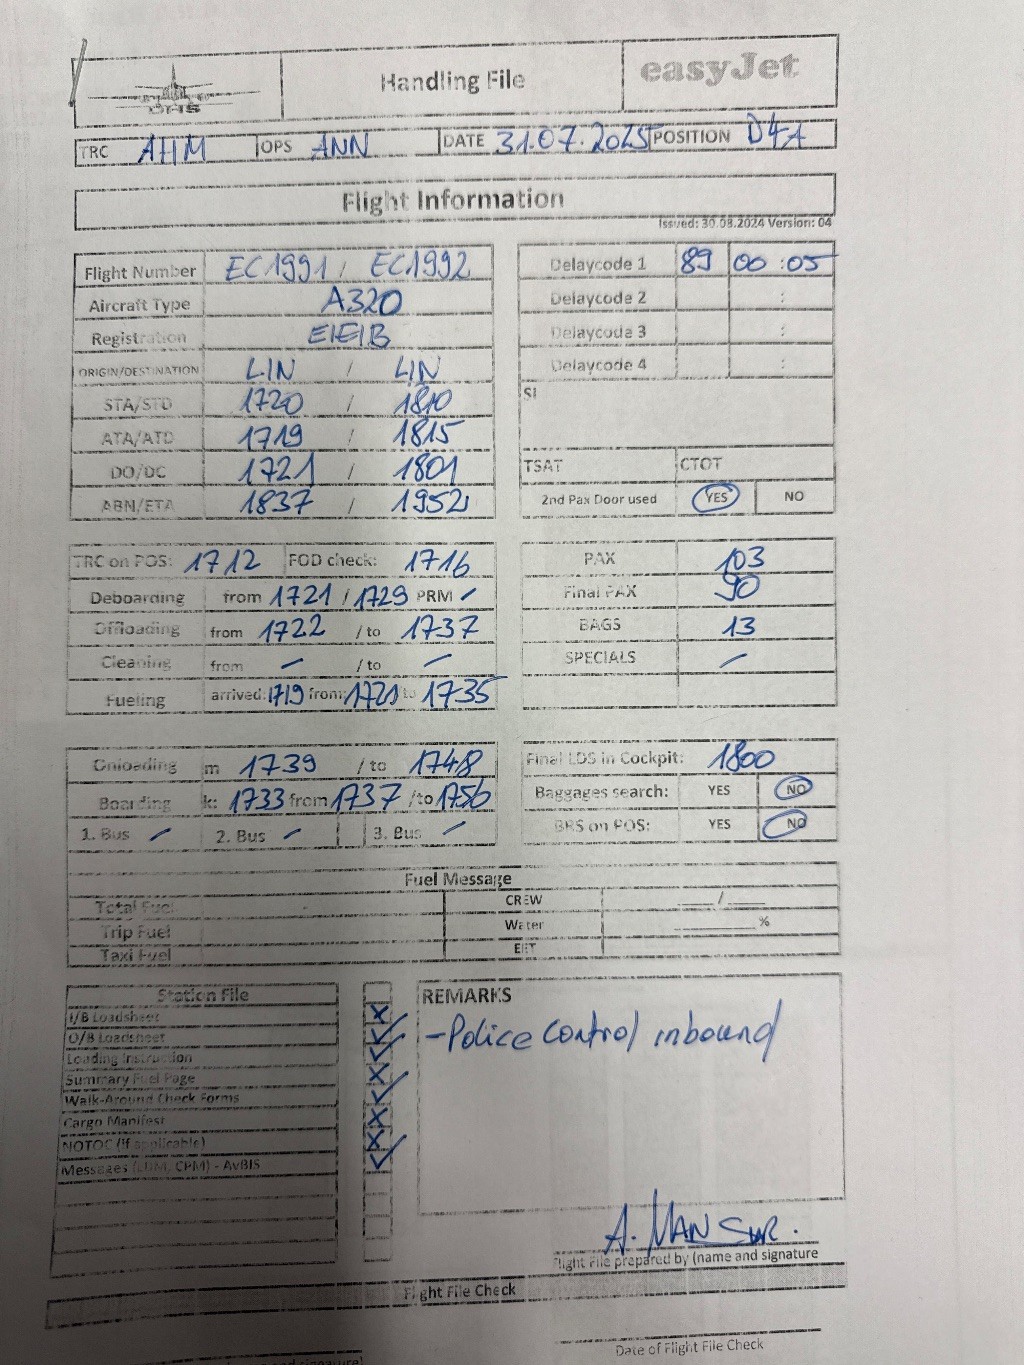 Handling File
easyJet
TRC AHM OPS ANN DATE 31.07.2025 POSITION D4A
Flight Information
Issued: 30.08.2024 Version: 04
Flight Number EC1991 / EC1992
Aircraft Type A320
Registration EIEIB
ORIGIN/DESTINATION LIN / LIN
STA/STD 1720 / 1810
ATA/ATD 1719 / 1815
DO/DC 1721 / 1801
ABN/ETA 1837 / 1952
Delaycode 1 89 00 :05
Delaycode 2 :
Delaycode 3 :
Delaycode 4 :
SI
TSAT CTOT
2nd Pax Door used YES NO
TRC on POS: 1712 FOD check: 1716
Deboarding from 1721 / 1729 PRM /
Offloading from 1722 / to 1737
Cleaning from / to
Fueling arrived: 1719 from: 1721 to 1735
PAX 103
Final PAX 90
BAGS 13
SPECIALS
Onloading m 1739 / to 1748
Boarding k: 1733 from 1737 /to 1756
1. Bus 2. Bus 3. Bus
Final LDS in Cockpit: 1800
Baggages search: YES NO
BRS on POS: YES NO
Fuel Message
Total Fuel CREW /
Trip Fuel Water %
Taxi Fuel
Station File
I/B Loadsheet
O/B Loadsheet
Loading Instruction
Summary Fuel Page
Walk-Around Check Forms
Cargo Manifest
NOTOC (if applicable)
Messages (LDM, CPM) - AvBIS
REMARKS
-Police control inbound
A. MANSUR.
Flight File prepared by (name and signature
Flight File Check
Date of Flight File Check